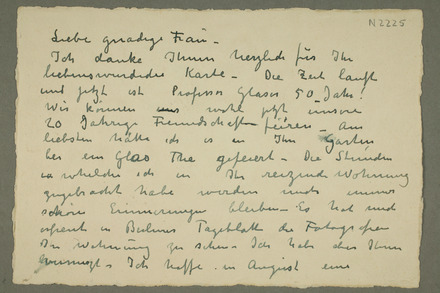 N 2225
Liebe gnädige Frau –
Ich danke Ihnen herzlich für Ihr
liebenswürdige Karte – Die Zeit lauft
und jetzt ist Professor Glaser 50 Jahr!
Wir können uns wohl jetzt unsere
20 Jahrige Freundschaft feiren – Am
liebsten hätte ich es in Ihr Garten
bei ein Glas The gefeiert – Die Stunden
welche ich in Ihr reizende Wohnung
zugebracht habe werden mir immer
schöne Erinnerungen bleiben – Es hat mich
erfreut in Berliner Tageblatt die Fotografien
Ihr Wohnung zu sehen – Ich habe aber Ihnen
Ich hoffe in August eine